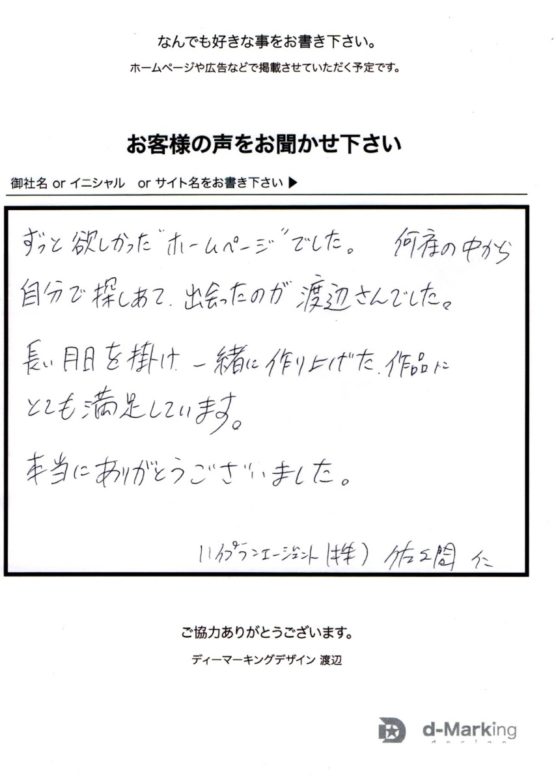 なんでも好きな事をお書き下さい。
ホームページや広告などで掲載させていただく予定です。
お客様の声をお聞かせ下さい
御社名 or イニシャル or サイト名をお書き下さい ▶
ずっと欲しかった"ホームページ"でした。 何産の中から
自分で探しあて、出会ったのが 渡辺さんでした。
長い月日を掛け、一緒に作り上げた、作品に
とても満足しています。
本当にありがとうございました。
ハイプランエージェント(株) 佐久間 仁
ご協力ありがとうございます。
ディーマーキングデザイン 渡辺
d-Marking
design